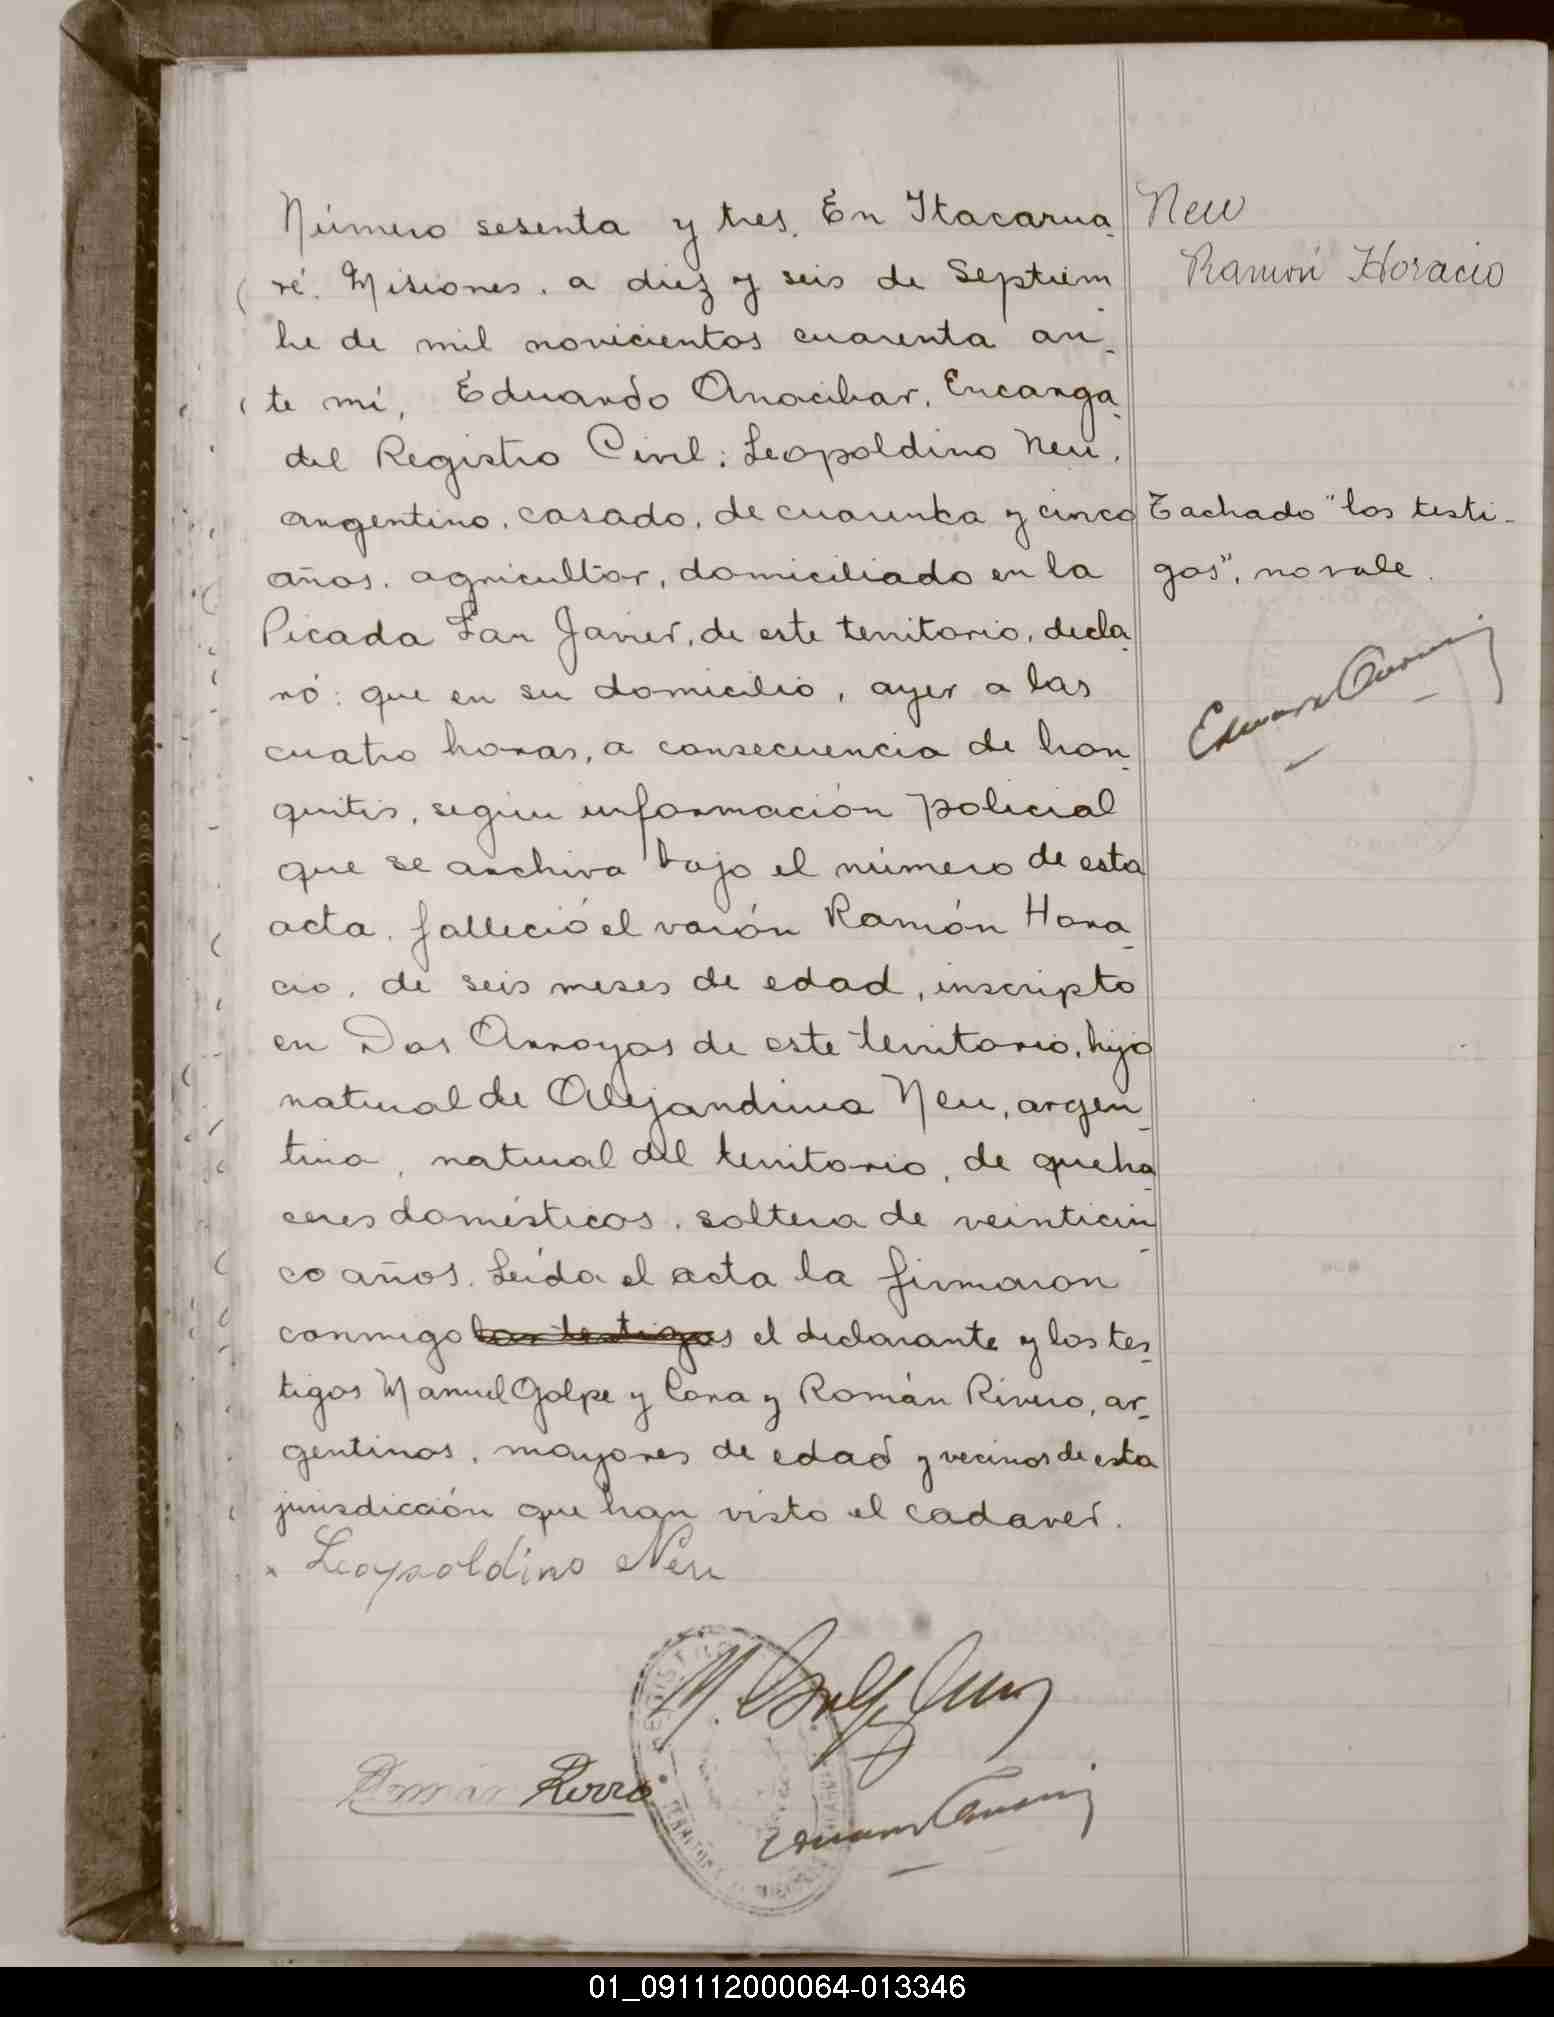 Número sesenta y tres. En Itacarua-
ré. Misiones. a diez y seis de Septiem
bre de mil novicientos cuarenta an-
te mí, Eduardo Anacibar, Encarga-
del Registro Civil: Leopoldino Neu,
argentino, casado, de cuarenta y cinco
años. agricultor, domiciliado en la
Picada San Javier, de este territorio, decla-
ró: que en su domicilio, ayer a las
cuatro horas, a consecuencia de bron-
quitis, según información policial
que se archiva bajo el número de esta
acta. falleció el varón Ramón Hora-
cio, de seis meses de edad, inscripto
en Dos Arroyos de este territorio, hijo
natural de Alejandrina Neu, argen-
tina, natural del territorio, de queha-
ceres domésticos. soltera de veinticin-
co años. Leída el acta la firmaron
conmigo los testigos el declarante y los tes-
tigos Manuel Golpe y Cora y Román Rivero, ar-
gentinos, mayores de edad y vecinos de esta
jurisdicción que han visto el cadaver.
x Leopoldino Neu
Román
REGISTRO
TERRITORIO
Neu
Ramón Horacio
Tachado "los testi-
gos", no vale.
01_091112000064-013346